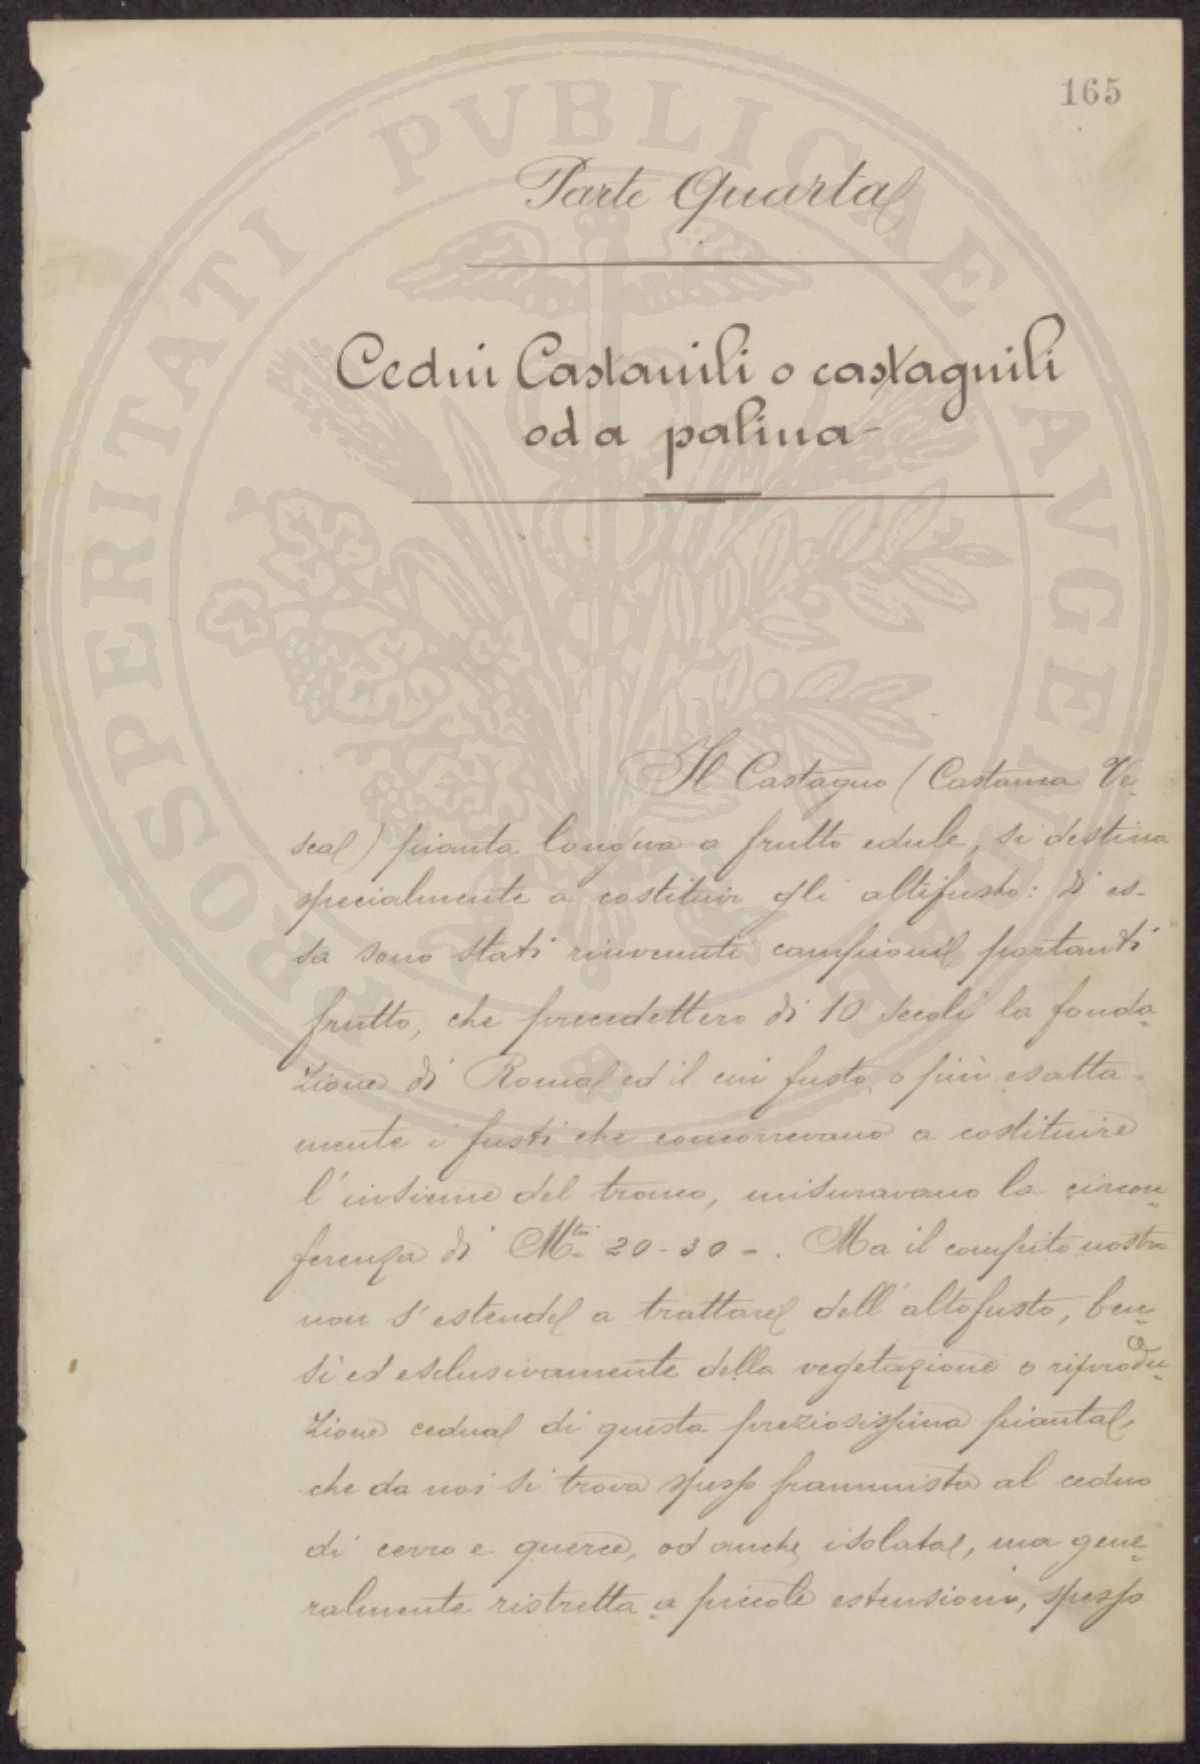 165
Parte Quarta
Cedui Castanili o castagnili
od a palina-
Il Castagno (Castanea Ve-
sca) pianta longeva a frutto edule, si destina
specialmente a costituir gli altifusto: di es-
sa sono stati rinvenuti campioni portanti
frutto, che precedettero di 10 secoli la fonda-
zione di Roma ed il cui fusto, o più esatta-
mente i fusti che concorrevano a costituire
l'insieme del tronco, misuravano la circon-
ferenza di M.tri 20-30-. Ma il compito nostro
non s'estende a trattare dell'altofusto, ben-
sì ed esclusivamente della vegetazione o riprodu-
zione cedua di questa preziosissima pianta,
che da noi si trova spesso frammista al ceduo
di cerro e querce, od anche isolata, ma gene-
ralmente ristretta a piccole estensioni, spesso
PROSPERITATI PVBLICAE AVGENDAE